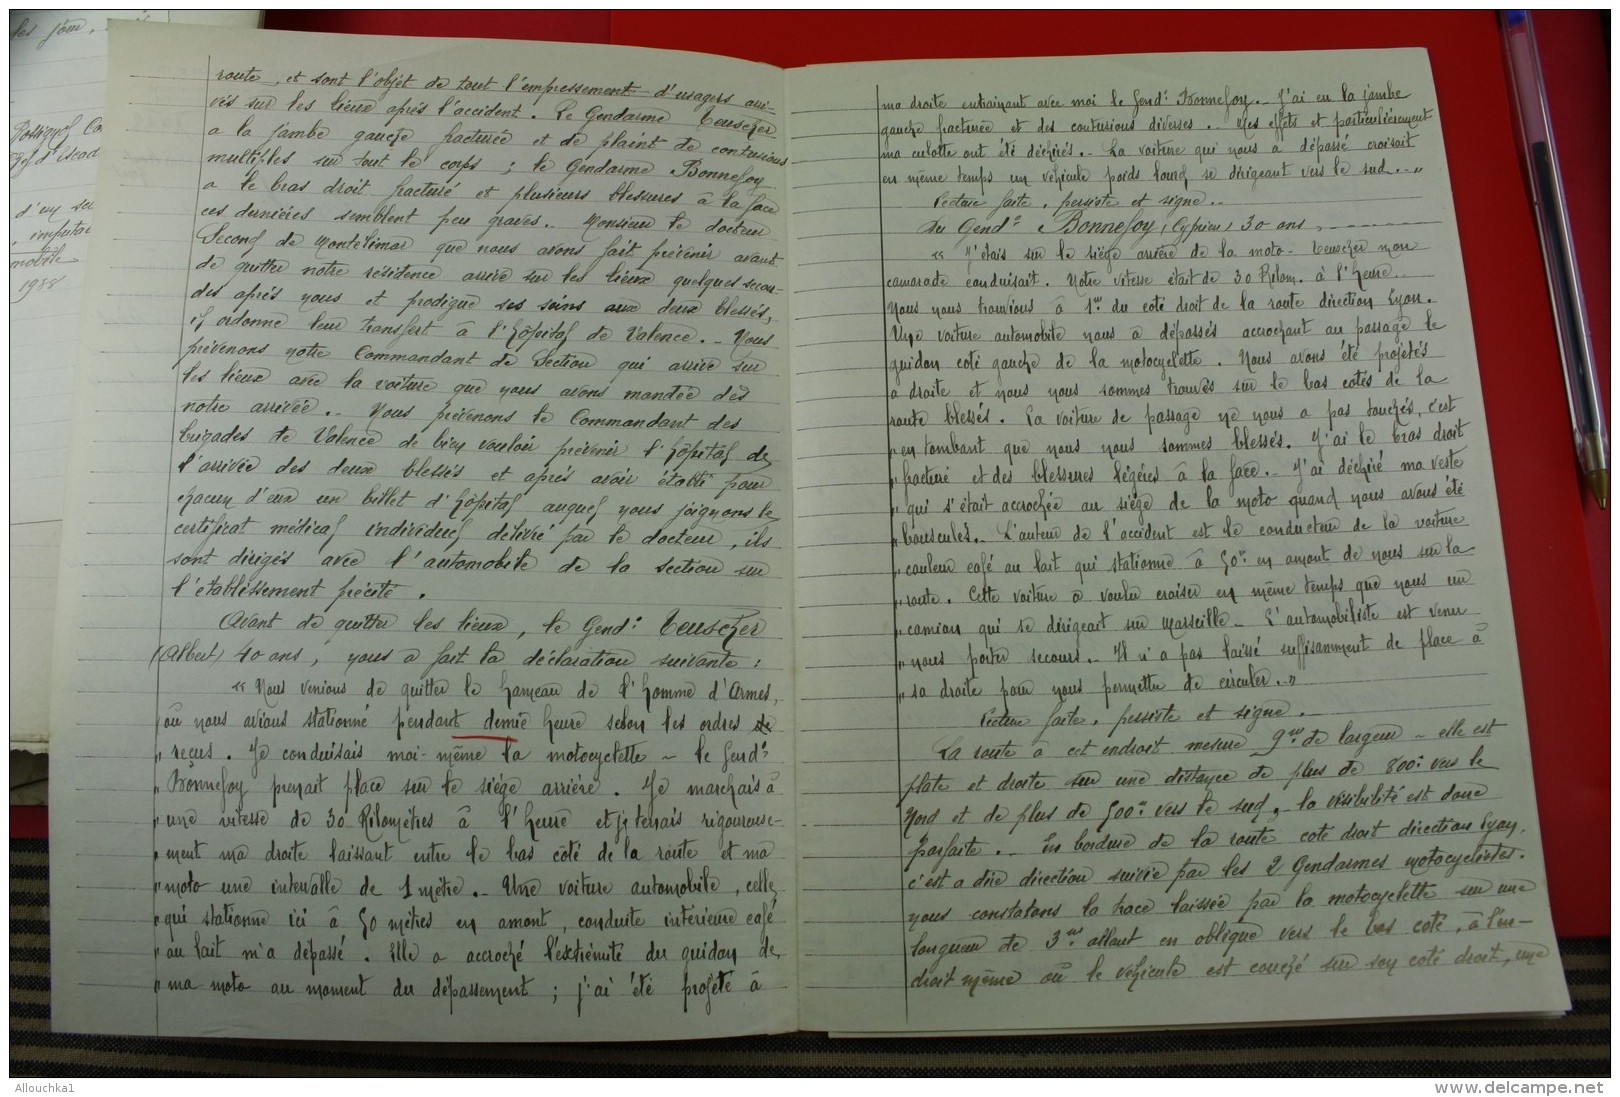 les jour,
Possignol
d'un
imputa
mobile
1938
route, et sont l'objet de tout l'empressement d'usagers arri-
vés sur les lieux après l'accident. Le Gendarme Teuscher
a la jambe gauche fracturée et de plaint de contusions
multiples sur tout le corps ; le Gendarme Bonnefoy
a le bras droit fracturé et plusieurs blessures à la face
ces dernières semblent peu graves. Monsieur le docteur
Second de Montélimar que nous avons fait prévenir avant
de quitter notre résidence arrive sur les lieux quelques secon-
des après nous et prodigue ses soins aux deux blessés,
et ordonne leur transfert à l'hôpital de Valence. - Nous
prévenons notre Commandant de Section qui arrive sur
les lieux avec la voiture que nous avons mandée dès
notre arrivée. - Nous prévenons le Commandant des
brigades de Valence de bien vouloir prévenir l'hôpital de
l'arrivée des deux blessés et après avoir établi pour
chacun d'eux un billet d'hôpital auquel nous joignons le
certificat médical individuel délivré par le docteur, ils
sont dirigés avec l'automobile de la section sur
l'établissement précité.
Avant de quitter les lieux, le Gend: Teuscher
(Albert) 40 ans, nous a fait la déclaration suivante :
« Nous venions de quitter le hameau de l'homme d'Armes,
où nous avions stationné pendant demie heure selon les ordres de
" reçus. Je conduisais moi-même la motocyclette - le Gend:
" Bonnefoy prenait place sur le siège arrière. Je marchais à
" une vitesse de 30 Kilomètres à l'heure et je tenais rigoureuse-
" ment ma droite laissant entre le bas côté de la route et ma
" moto une intervalle de 1 mètre. - Une voiture automobile, celle
" qui stationne ici à 50 mètres en amont, conduite intérieure café
" au lait m'a dépassé. Elle a accroché l'extrémité du guidon de
" ma moto au moment du dépassement ; j'ai été projeté à
ma droite entraînant avec moi le Gend: Bonnefoy. - J'ai eu la jambe
gauche fracturée et des contusions diverses. - Mes effets et particulièrement
ma culotte ont été déchirés. - La voiture qui nous a dépassé croisait
en même temps un véhicule poids lourd se dirigeant vers le sud. - "
Lecture faite, persiste et signe. -
Du Gend: Bonnefoy (Cyprien) 30 ans,
« J'étais sur le siège arrière de la moto - Teuscher mon
camarade conduisait. Notre vitesse était de 30 Kilom. à l'heure. -
Nous nous trouvions à 1m du coté droit de la route direction Lyon.
Une voiture automobile nous a dépassés accrochant au passage le
guidon coté gauche de la motocyclette. Nous avons été projetés
a droite et nous nous sommes trouvés sur le bas cotés de la
route blessés. La voiture de passage ne nous a pas touchés, c'est
" en tombant que nous nous sommes blessés. J'ai le bras droit
" fracturé et des blessures légères à la face. - J'ai déchiré ma veste
" qui s'était accrochée au siège de la moto quand nous avons été
" bousculés. - L'auteur de l'accident est le conducteur de la voiture
" couleur café au lait qui stationne à 50m en amont de nous sur la
" route. Cette voiture a voulu croiser en même temps que nous un
" camion qui se dirigeait sur Marseille. - L'automobiliste est venu
" nous porter secours. - Il n'a pas laissé suffisamment de place à
" sa droite pour nous permettre de circuler. - "
Lecture faite, persiste et signe. -
La route à cet endroit mesure 9m de largeur - elle est
plate et droite sur une distance de plus de 800m vers le
Nord et de plus de 500m vers le sud, la visibilité est donc
parfaite. - En bordure de la route coté droit direction Lyon,
c'est a dire direction suivie par les 2 Gendarmes motocyclistes.
nous constatons la trace laissée par la motocyclette sur une
longueur de 3m allant en oblique vers le bas coté, à l'en-
droit même où le véhicule est couché sur son coté droit, une
Allouchka1
www.delcampe.net